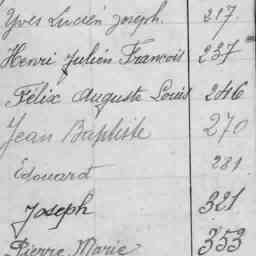 Yves Lucien Joseph. 217.
Henri Julien Francois 237
Félix Auguste Louis 246
Jean Baptiste 270
Édouard 281.
Joseph 321
Pierre Marie 353